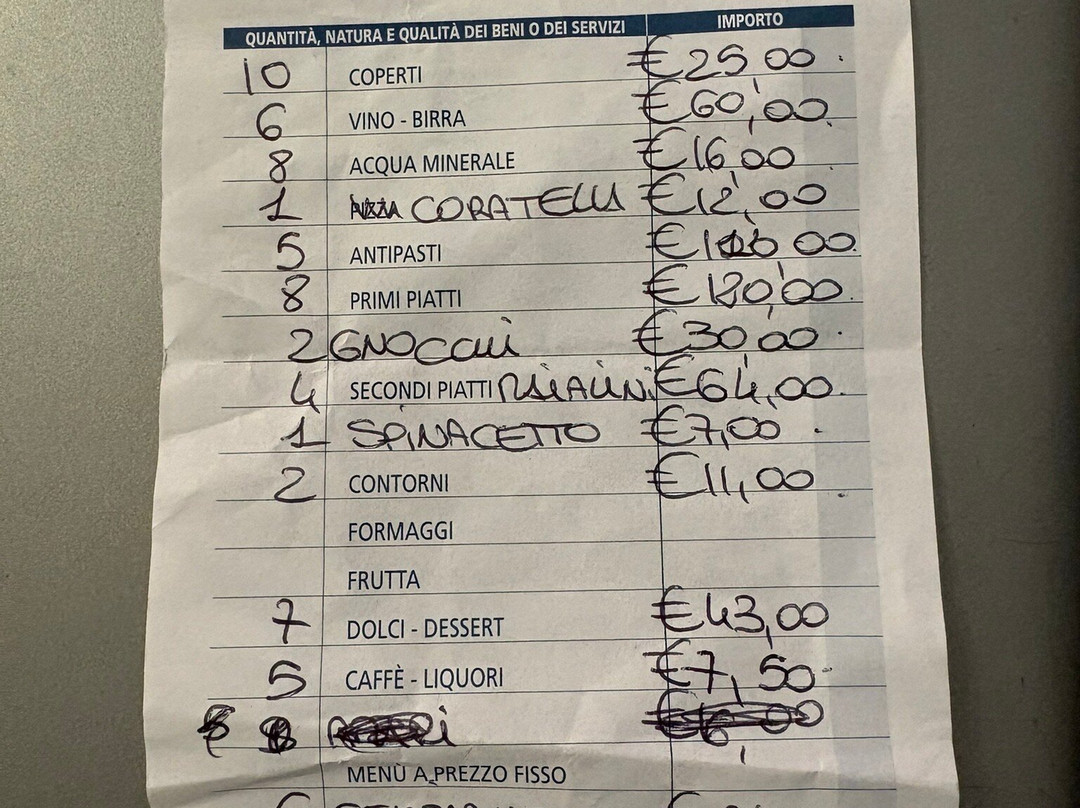 QUANTITÀ, NATURA E QUALITÀ DEI BENI O DEI SERVIZI IMPORTO
10 COPERTI € 25,00
6 VINO - BIRRA € 60,00
8 ACQUA MINERALE € 16,00
1 PIZZA CORATELLI € 12,00
5 ANTIPASTI €
8 PRIMI PIATTI € 120,00
2 GNOCCHI € 30,00
4 SECONDI PIATTI € 64,00
1 SPINACETTO € 7,00
2 CONTORNI € 11,00
FORMAGGI
FRUTTA
7 DOLCI - DESSERT € 43,00
5 CAFFÈ - LIQUORI € 7,50
MENÙ A PREZZO FISSO